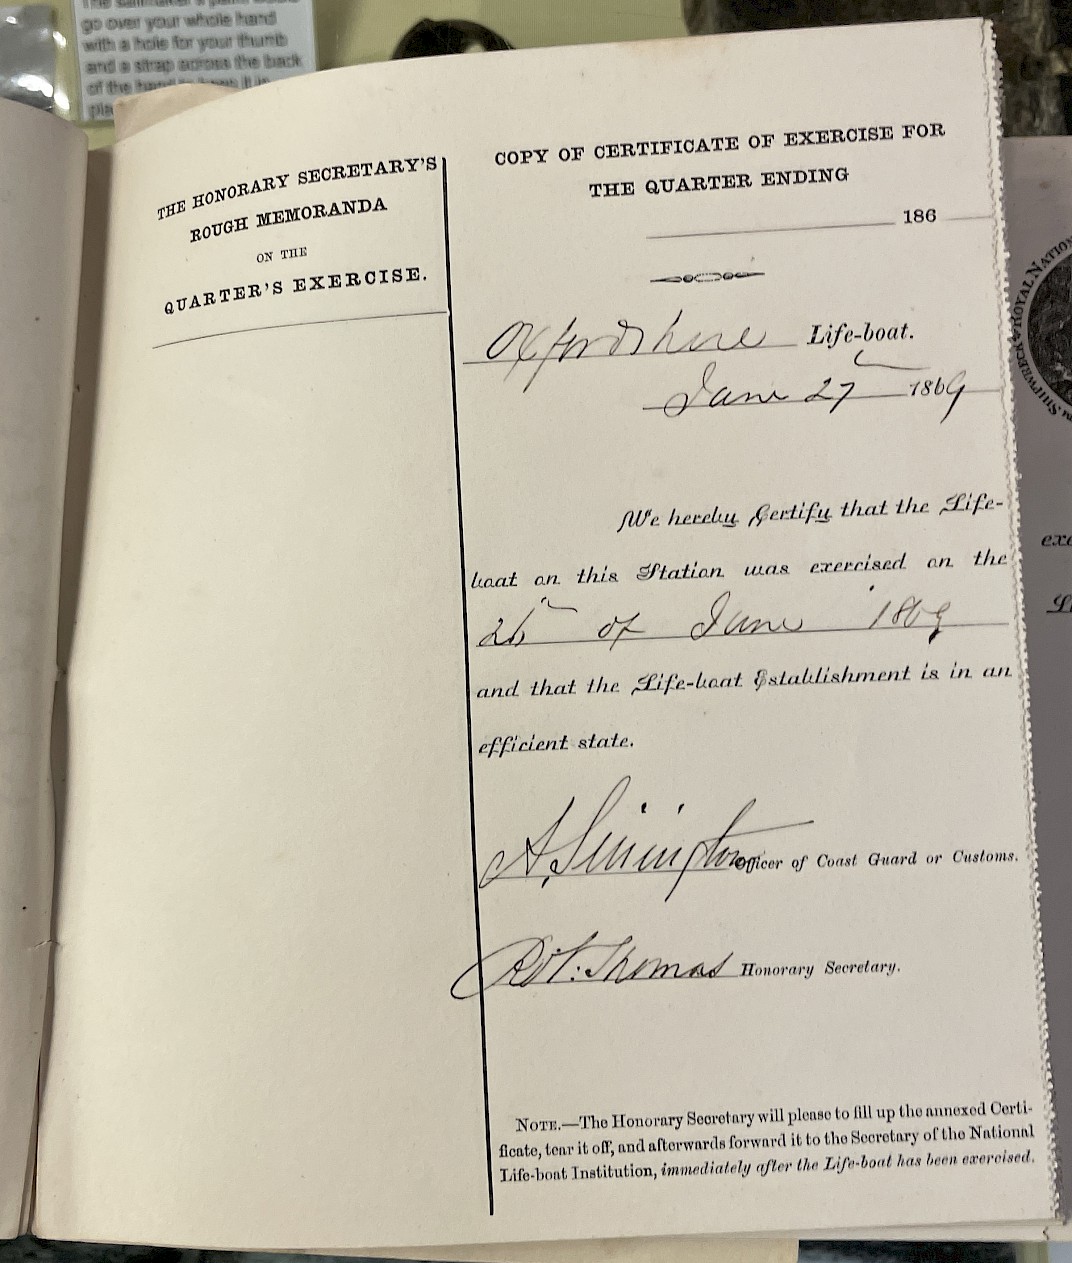 go over your whole hand
with a hole for your thumb
and a strap across the back
of the hand
THE HONORARY SECRETARY'S
ROUGH MEMORANDA
ON THE
QUARTER'S EXERCISE.
COPY OF CERTIFICATE OF EXERCISE FOR
THE QUARTER ENDING
186
Oxfordshire Life-boat.
June 27 1869
We hereby Certify that the Life-
boat on this Station was exercised on the
26 of June 1869
and that the Life-boat Establishment is in an
efficient state.
Officer of Coast Guard or Customs.
Robt. Thomas Honorary Secretary.
NOTE.—The Honorary Secretary will please to fill up the annexed Certi-
ficate, tear it off, and afterwards forward it to the Secretary of the National
Life-boat Institution, immediately after the Life-boat has been exercised.
SHIPWRECK ROYAL NATION